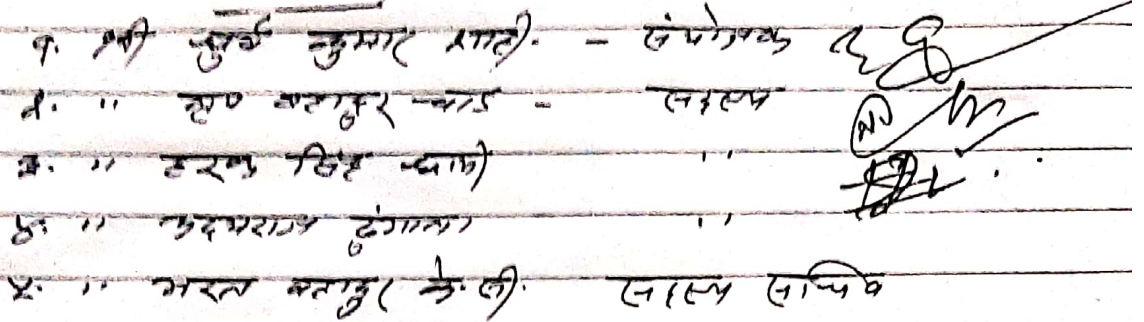 १. श्री सुर्य कुमार शाही. - संयोजक
२. " रुप बहादुर चन्द - सदस्य
३. " हरक सिंह धामी "
४. " उदयराज ढुंगाना "
५. " भरत बहादुर के.सी. सदस्य सचिव